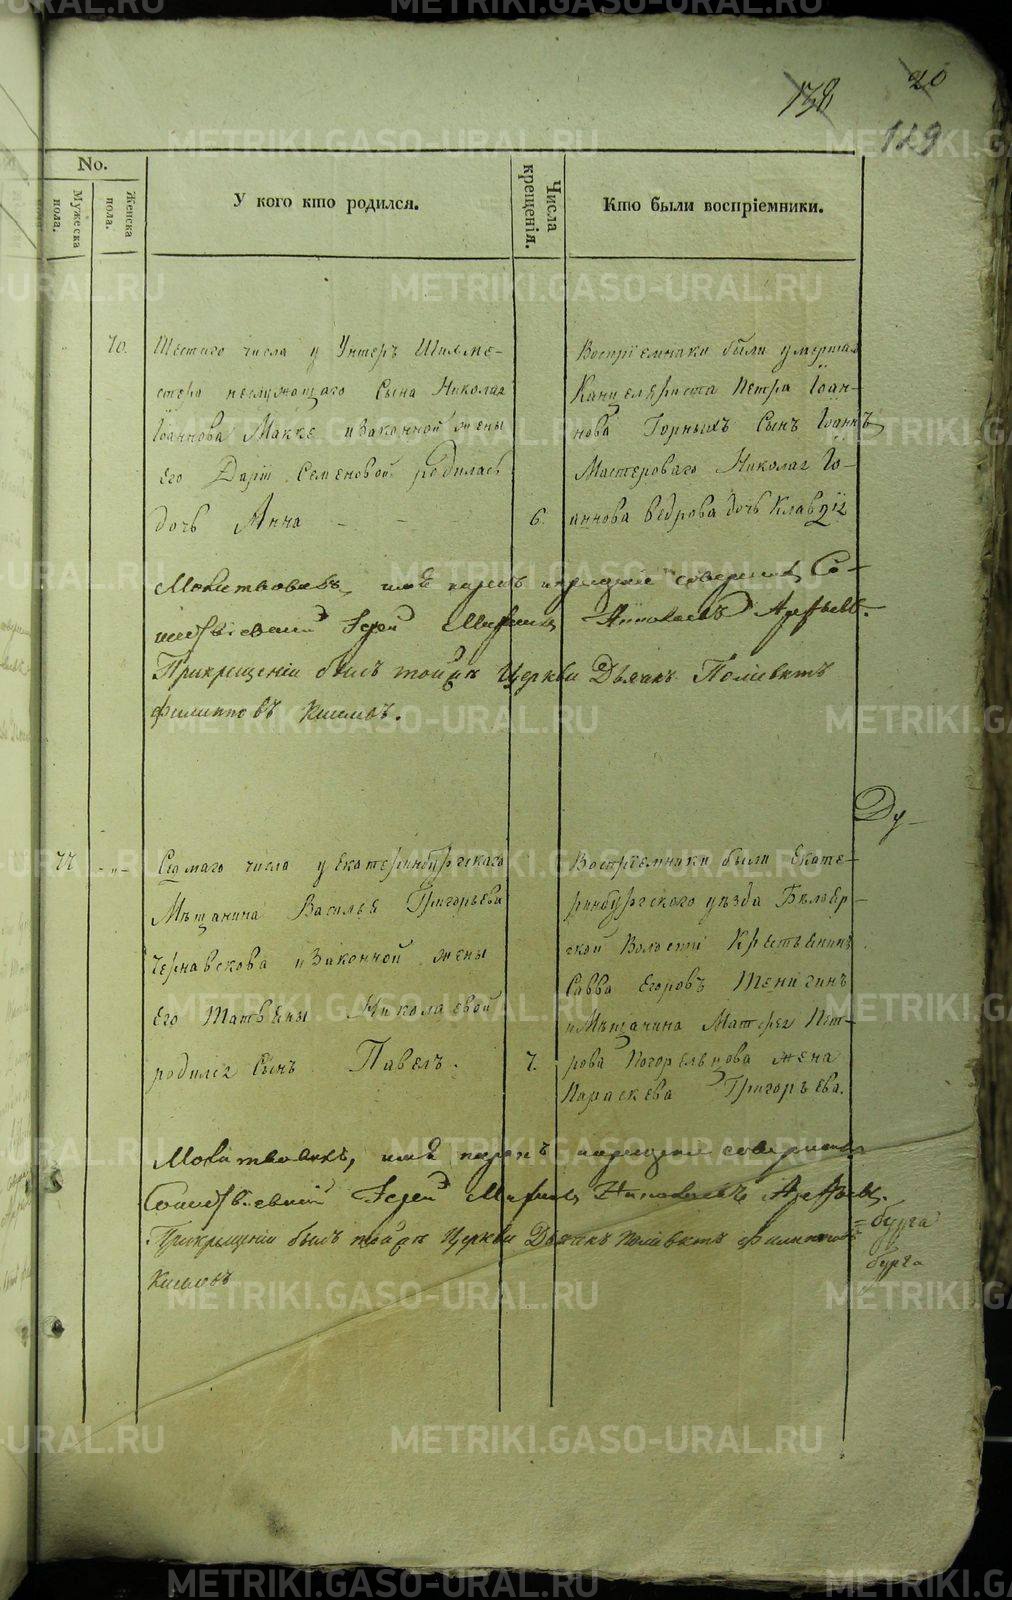 138
20
119
No.
Мужеска пола.
Женска пола.
У кого кто родился.
Числа крещенія.
Кто были воспріемники.
70.
Шестаго числа у Унтеръ Шихме-
стера неслужащаго сына Николая
Іоаннова Макке и законной жены
его Дарїи Семеновой родилась
дочь Анна - - - 6.
Воспріемники были умершаго
Канцеляриста Петра Іоан-
нова Горныхъ сынъ Іоаннъ
Мастероваго Николая Іо-
аннова Ведрова дочь Клавдія
Молитвовалъ, имя нарекъ и крещеніе совершилъ Со-
Іерей Николаевъ
При крещеніи былъ той же Церкви Дьячекъ Поліевктъ
Филипповъ Кисловъ.
Ду-
77
-„-
Седмаго числа у Екатеринбургскаго
Мѣщанина Василья Григорьева
Чернавскова и законной жены
его Матвѣны Николаевой
родился сынъ Павелъ. 7.
Воспріемники были Екате-
ринбургскаго уѣзда Бѣлояр-
ской Волости Крестьянинъ
Савва Егоровъ
и Мѣщанина Матфея Пет-
рова Погорельцова жена
Параскева Григорьева.
Молитвовалъ, имя нарекъ и крещеніе совершилъ
Іерей Николаевъ
При крещеніи былъ той же Церкви Дьячекъ Поліевктъ Филипповъ
Кисловъ
=бурга
бурга
METRIKI.GASO-URAL.RU